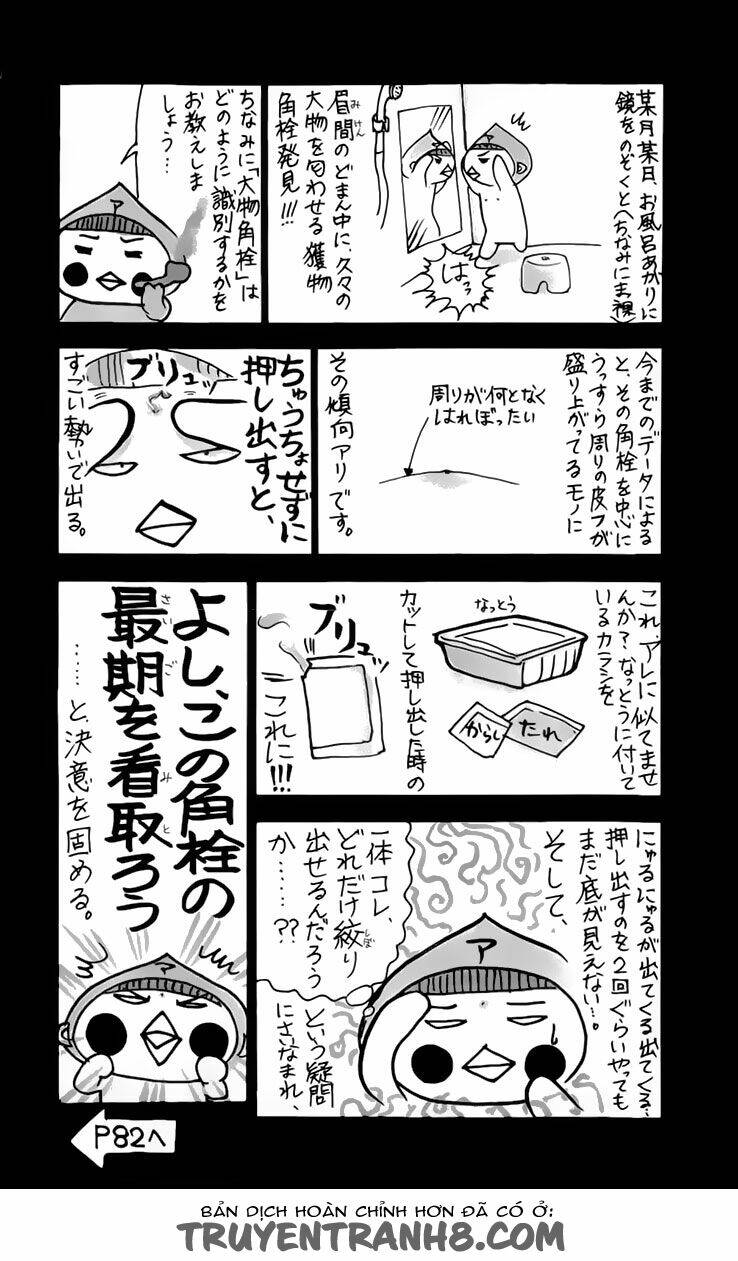 某月某日、お風呂あがりに
鏡をのぞくと(ちなみに重視)
眉間のどまん中に、久々の
大物を匂わせる獲物
角栓発見!!!
みけん
はっ
ちなみに「大物角栓」は
どのように識別するかを
お教えしま
しょう…
ア
今までのデータによる
と、その角栓を中心に
うっすら周りの皮フが
盛り上がってるモノに
周りが何となく
はれぼったい
その傾向アリです。
ちゅうちょせずに
押し出すと、
ブリュッ
すごい勢いで出る。
これ、アレに似てませ
んか?なっとうに付いて
いるカラシを
なっとう
からし
たれ
カットして押し出した時の
ブリュッ
これに!!!
にゅるにゅるが出てくる出てくる…
押し出すのを2回ぐらいやっても
まだ底が見えない…。
そして、
一体コレ、
どれだけ絞り
出せるんだろう
か……??
しぼ
という疑問
にさいなまれ、
ア
よし、この角栓の
最期を看取ろう
さいご
みと
……と、決意を固める。
ア
P82へ
BẢN DỊCH HOÀN CHỈNH HƠN ĐÃ CÓ Ở:
TRUYENTRANH8.COM